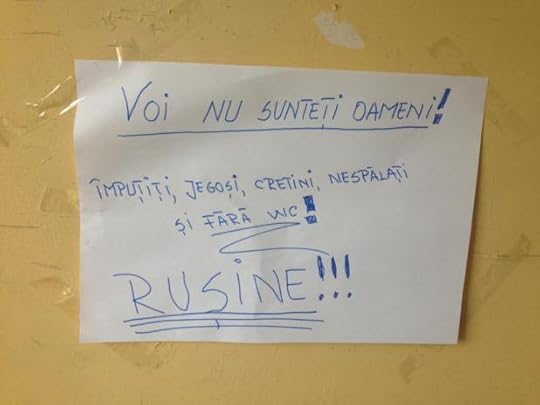 VOI NU SUNTEȚI OAMENI!
ÎMPUȚIȚI, JEGOȘI, CRETINI, NESPĂLAȚI
ȘI FĂRĂ WC!
RUȘINE!!!